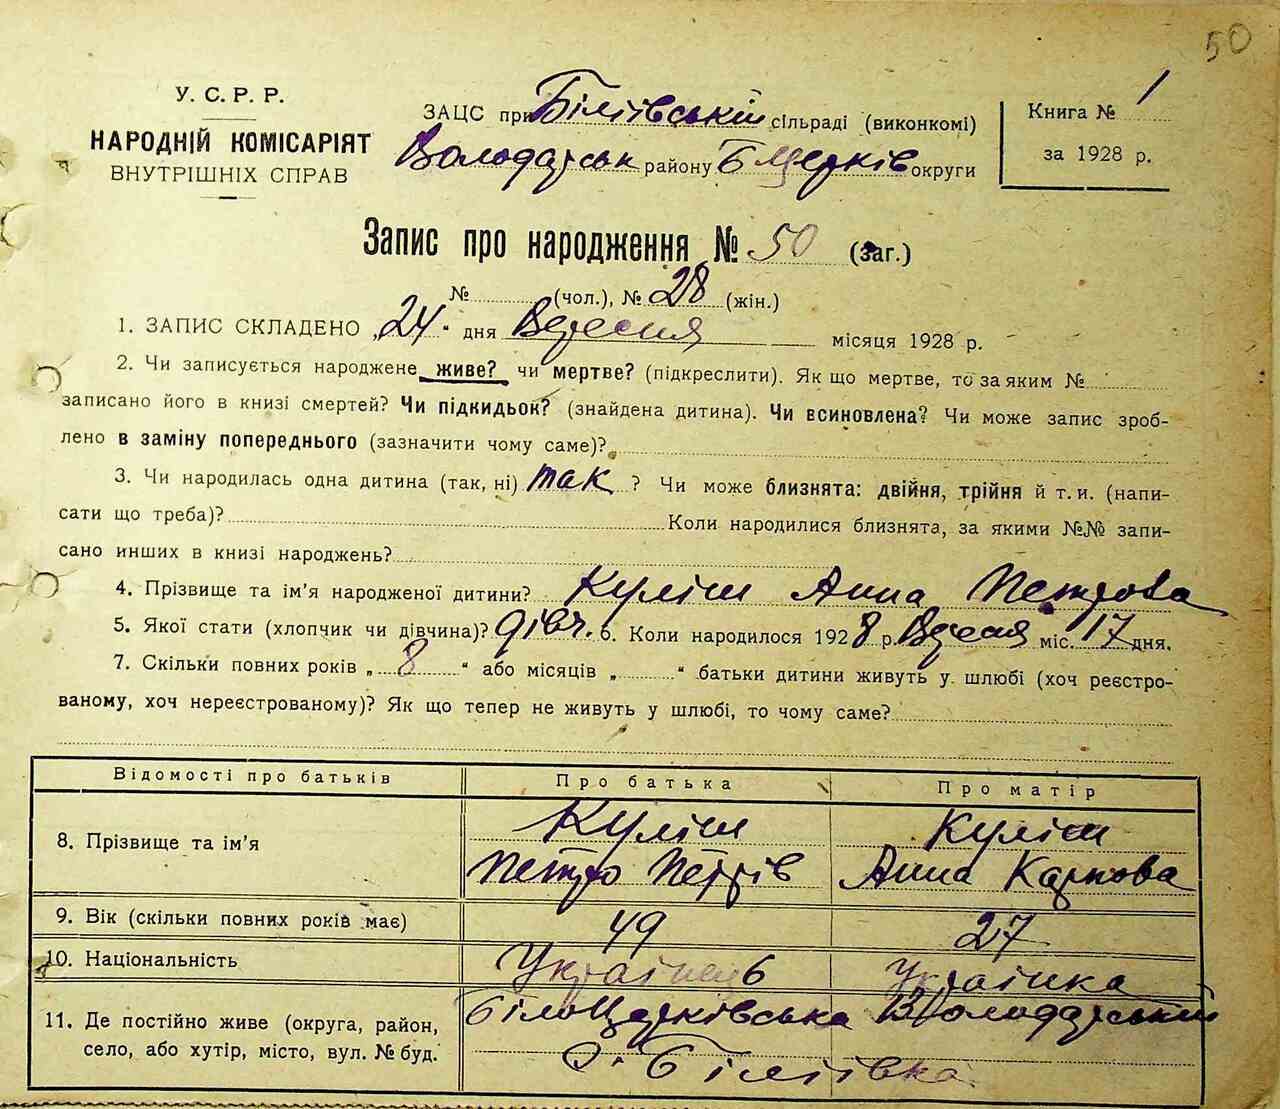 50
У. С. Р. Р.
НАРОДНІЙ КОМІСАРІЯТ
ВНУТРІШНІХ СПРАВ
ЗАЦС при Біліївській сільраді (виконкомі)
Володарськ району БЦерків округи
Книга № 1
за 1928 р.
Запис про народження № 50 (заг.)
№ (чол.), № 28 (жін.)
1. ЗАПИС СКЛАДЕНО „24" дня Вересня місяця 1928 р.
2. Чи записується народжене живе? чи мертве? (підкреслити). Як що мертве, то за яким №
записано його в книзі смертей? Чи підкидьок? (знайдена дитина). Чи всиновлена? Чи може запис зроб-
лено в заміну попереднього (зазначити чому саме)?
3. Чи народилась одна дитина (так, ні) так ? Чи може близнята: двійня, трійня й т. и. (напи-
сати що треба)? Коли народилися близнята, за якими №№ запи-
сано инших в книзі народжень?
4. Прізвище та ім'я народженої дитини? Куліш Анна Петрова
5. Якої стати (хлопчик чи дівчина)? дівч. 6. Коли народилося 1928 р. Вересня міс. 17 дня.
7. Скільки повних років „ 8 " або місяців „ " батьки дитини живуть у шлюбі (хоч реєстро-
ваному, хоч нереєстрованому)? Як що тепер не живуть у шлюбі, то чому саме?
Відомості про батьків Про батька Про матір
8. Прізвище та ім'я Куліш Петро Петрів Куліш Анна Карпова
9. Вік (скільки повних років має) 49 27
10. Національність Українець Українка
11. Де постійно живе (округа, район, БілоЦерківська Володарський
село, або хутір, місто, вул. № буд. с. Біліївка